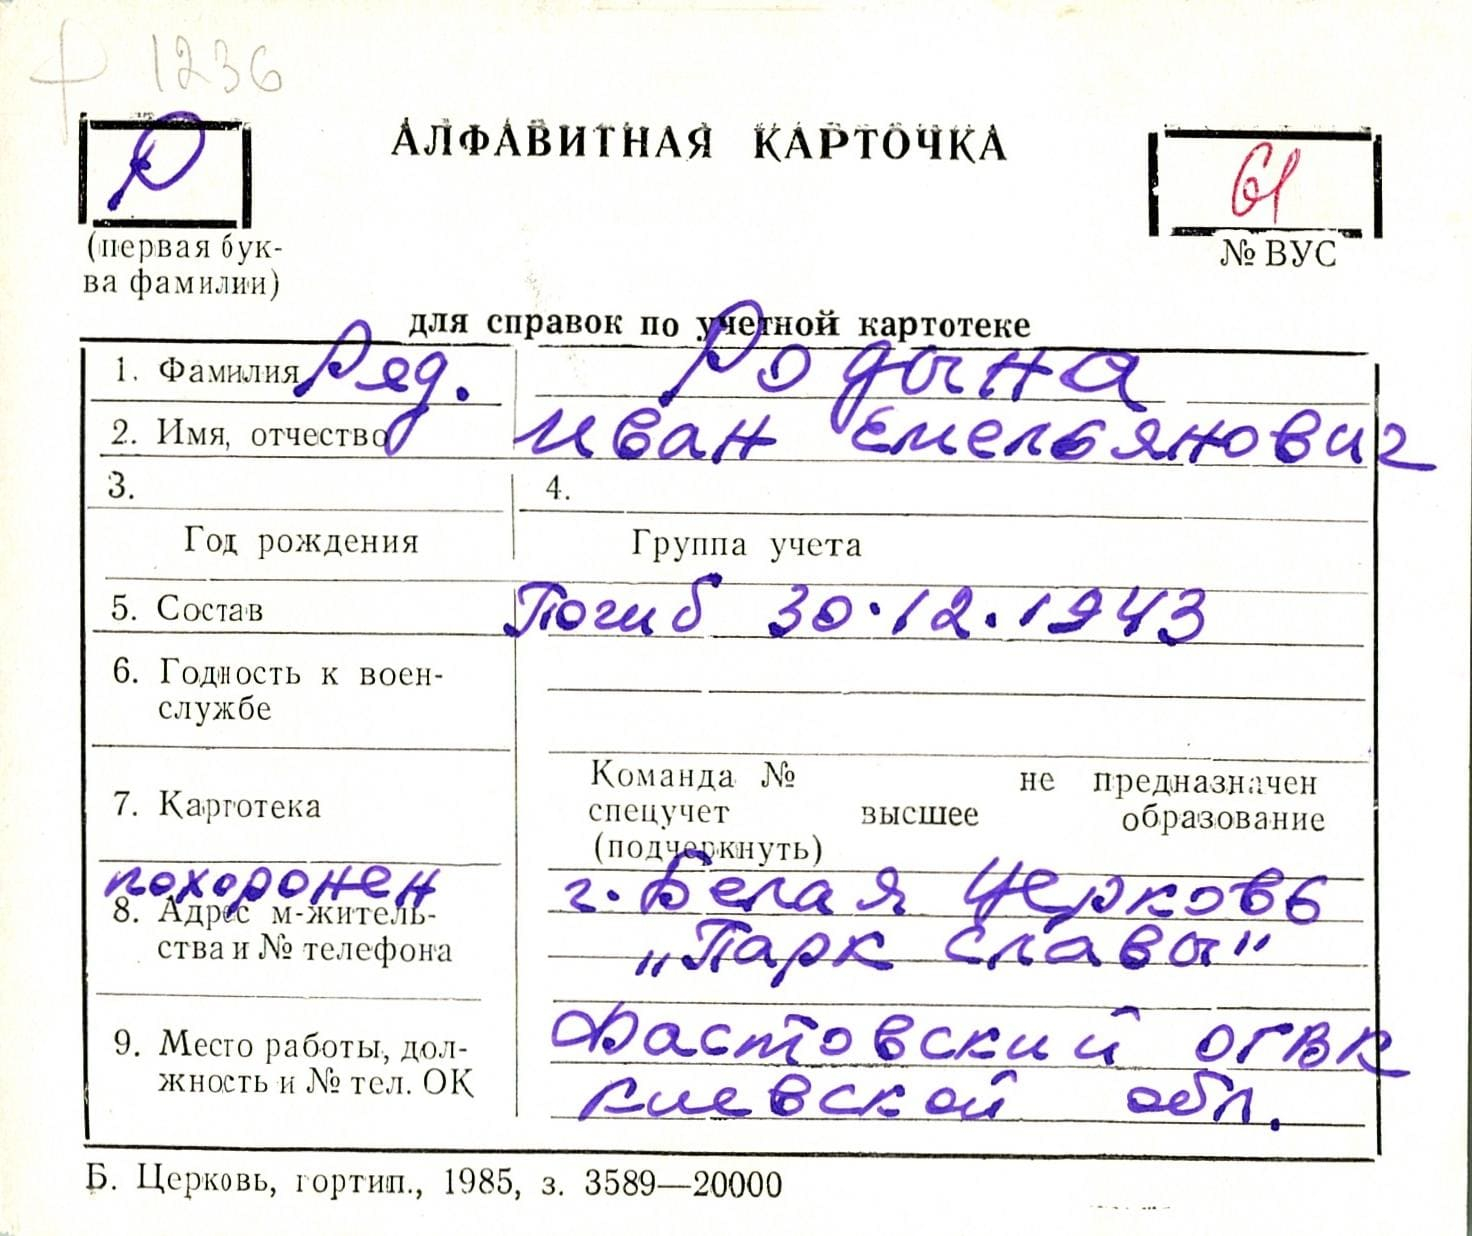 Ф 1236
Р
АЛФАВИТНАЯ КАРТОЧКА
61
(первая бук-
ва фамилии)
№ ВУС
для справок по учетной картотеке
1. Фамилия Ряд. Родына
2. Имя, отчество Иван Емельянович
3. 4.
Год рождения Группа учета
5. Состав Погиб 30.12.1943
6. Годность к воен-
службе
7. Картотека
Команда № не предназначен
спецучет высшее образование
(подчеркнуть)
похоронен г. Белая Церковь
8. Адрес м-житель-
ства и № телефона
„Парк Славы"
9. Место работы, дол-
жность и № тел. ОК
Фастовский ОГВК
Киевской обл.
Б. Церковь, гортип., 1985, з. 3589—20000